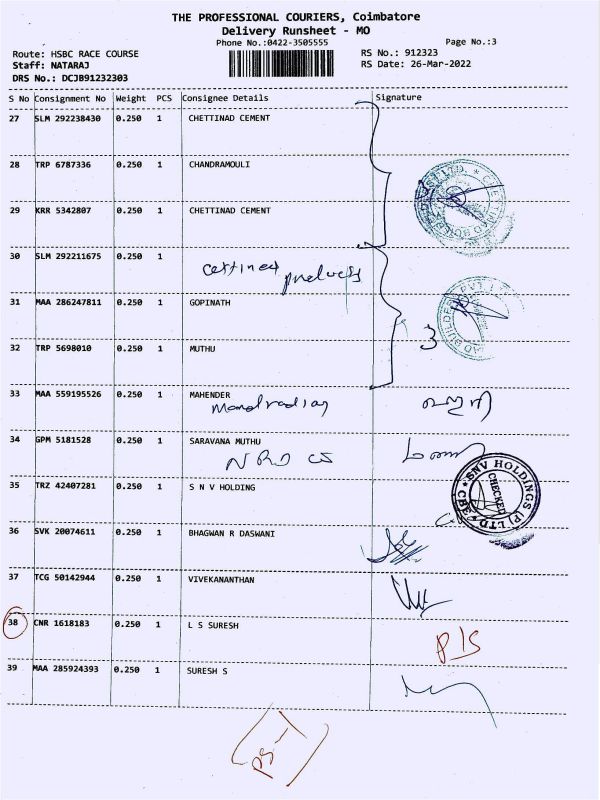 THE PROFESSIONAL COURIERS, Coimbatore
Delivery Runsheet - MO
Phone No.:0422-3505555
Page No.:3
Route: HSBC RACE COURSE
RS No.: 912323
Staff: NATARAJ
RS Date: 26-Mar-2022
DRS No.: DCJB91232303
S No Consignment No Weight PCS Consignee Details Signature
27 SLM 292238430 0.250 1 CHETTINAD CEMENT
28 TRP 6787336 0.250 1 CHANDRAMOULI
29 KRR 5342807 0.250 1 CHETTINAD CEMENT
30 SLM 292211675 0.250 1
31 MAA 286247811 0.250 1 GOPINATH
3
32 TRP 5698010 0.250 1 MUTHU
33 MAA 559195526 0.250 1 MAHENDER
34 GPM 5181528 0.250 1 SARAVANA MUTHU
SNV HOLDINGS (P) LTD CBE
CHECKED
35 TRZ 42407281 0.250 1 S N V HOLDING
36 SVK 20074611 0.250 1 BHAGWAN R DASWANI
37 TCG 50142944 0.250 1 VIVEKANANTHAN
38 CNR 1618183 0.250 1 L S SURESH
P/S
39 MAA 285924393 0.250 1 SURESH S